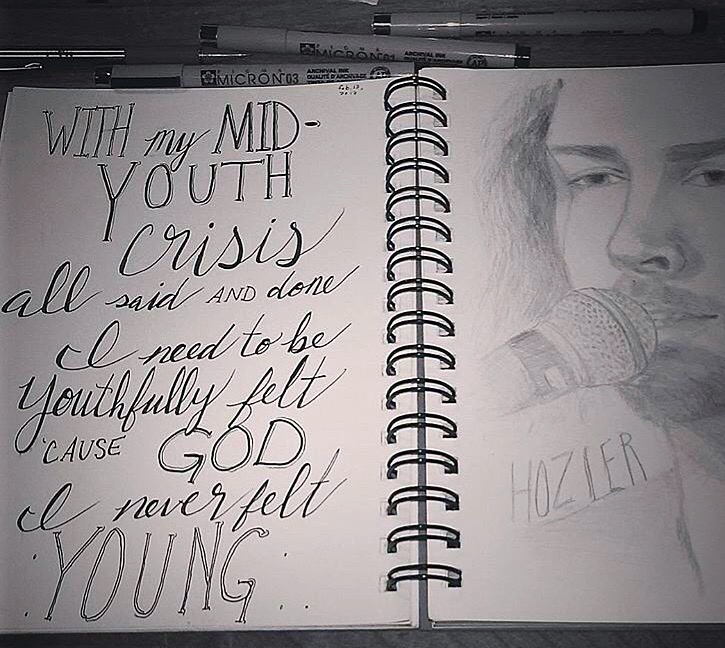 MICRON 01
ARCHIVAL INK
MICRON 03
ARCHIVAL INK
QUALITÉ D'ARCHIVAGE
WITH my MID-
YOUTH
crisis
all said AND done
I need to be
youthfully felt
'CAUSE GOD
I never felt
YOUNG...
HOZIER